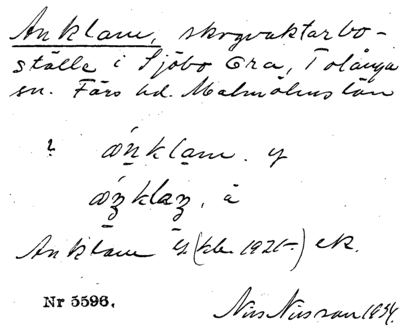 Anklam, skogvaktarbo-
ställe i Sjöbo Ora, Tolånga
sn. Färs hd. Malmöhus län
ánklam. y
áŋklaŋ, ä
Anklam (kb. 1921-) ek.
Nr 5596. Nils Nilsson 1934.